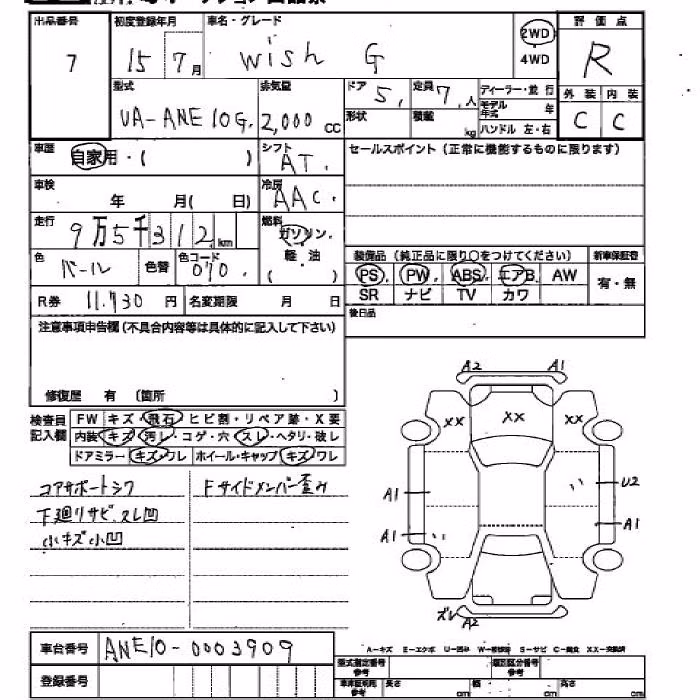 出品番号 初度登録年月 車名・グレード 評価点
7 15 7月 wish G 2WD 4WD R
型式 排気量 ドア 定員 ディーラー・並行 外装 内装
UA-ANE10G. 2,000 CC 5, 7, 人 モデル年式 年 C C
形状 積載 kg ハンドル 左・右
車歴 自家用・( ) シフト AT. セールスポイント(正常に機能するものに限ります)
車検 年 月( 日) 冷房 AAC.
走行 9万5千312km 燃料 ガソリン.
軽油
( )
色 パール 色替 色コード 070. 装備品(純正品に限り○をつけてください) 新車保証書
PS. PW. ABS. エアB. AW 有・無
SR ナビ TV カワ
R券 11.730 円 名変期限 月 日 後日品
注意事項申告欄(不具合内容等は具体的に記入して下さい)
修復歴 有 (箇所 )
A2 A1
検査員記入欄 FW キズ・飛石・ヒビ割・リペア跡・X要
内装 キズ・汚レ・コゲ・穴・スレ・ヘタリ・破レ
ドアミラー キズ・ワレ ホイール・キャップ キズ・ワレ
XX XX XX
コアサポートシク Fサイドメンバー歪み
下廻リサビ、スレ凹
小キズ小凹
A1 U2
A1 A1
ズレ A2
車台番号 ANE10-0003909
A-キズ E-エクボ U-凹み S-サビ XX-交換済
登録番号 型式指定番号 参考 類別区分番号 参考
長さ cm 幅 cm 高さ cm